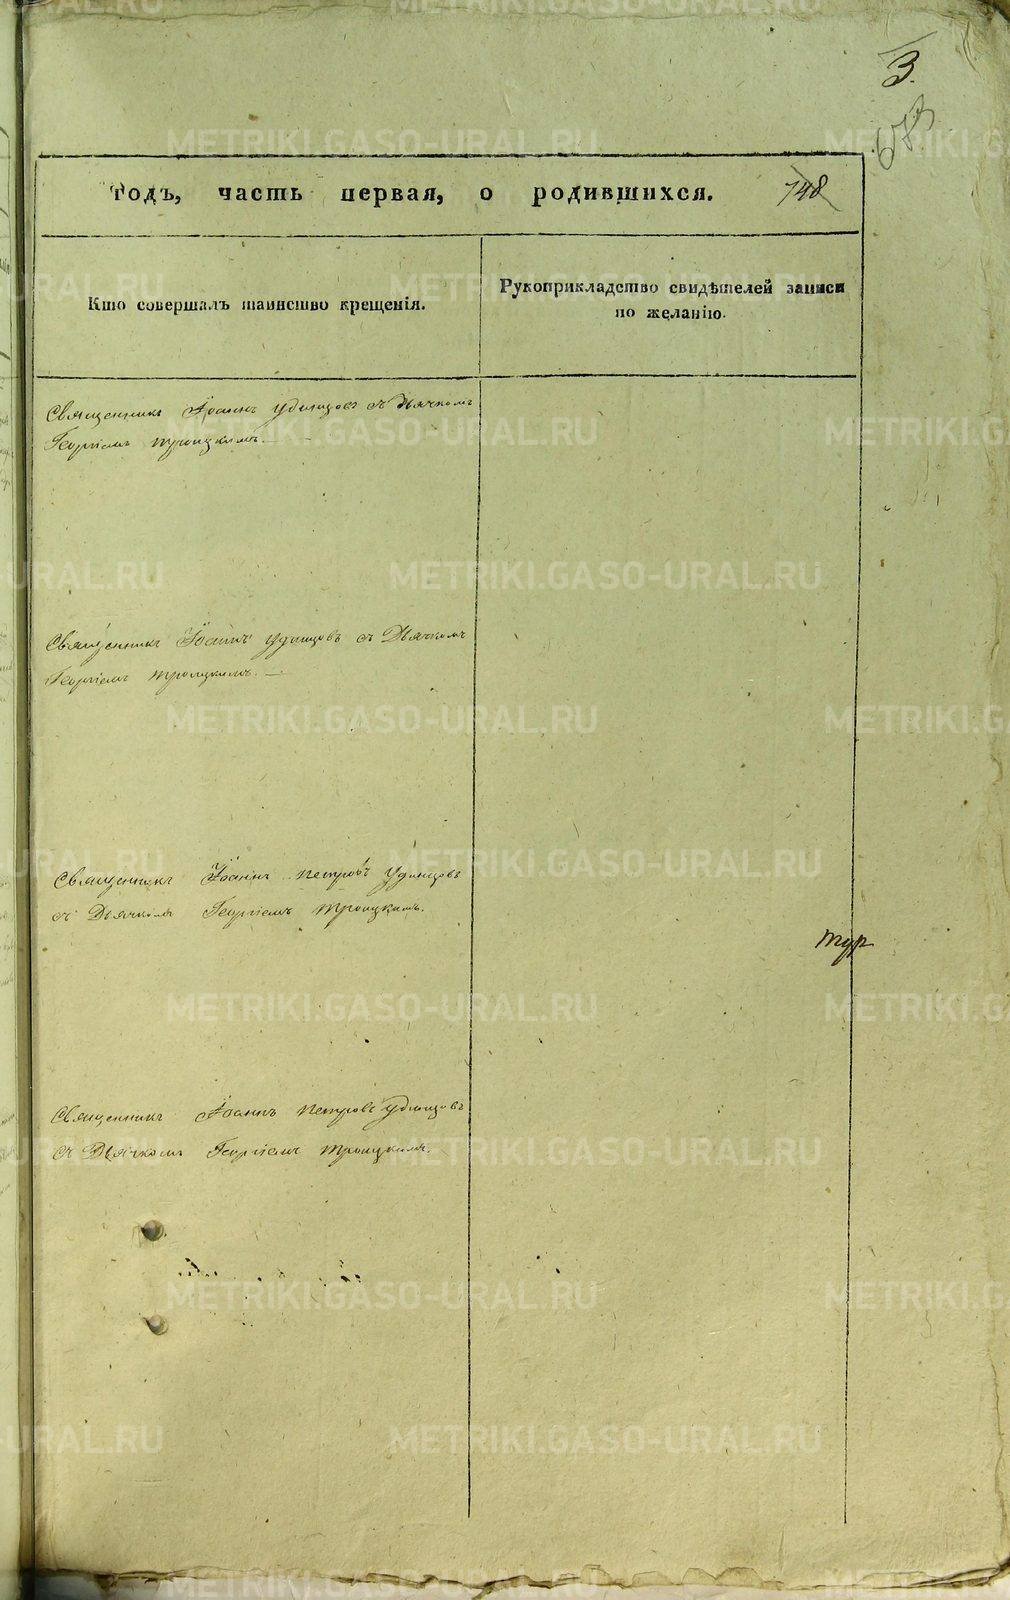 3.
673
годъ, часть первая, о родившихся. 748
Кто совершалъ таинство крещенія.
Рукоприкладство свидѣтелей записи
по желанію.
Священникъ Іоаннъ Удинцовъ съ Дьячкомъ
Георгіемъ Троицкимъ.
Священникъ Іоаннъ Удинцовъ съ Дьячкомъ
Георгіемъ Троицкимъ.
Священникъ Іоаннъ Петровъ Удинцовъ
съ Дьячкомъ Георгіемъ Троицкимъ.
Тур
Священникъ Іоаннъ Петровъ Удинцовъ
съ Дьячкомъ Георгіемъ Троицкимъ.
METRIKI.GASO-URAL.RU